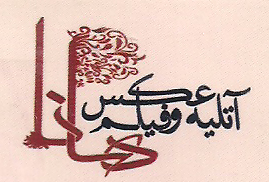 آتلیه عکس و فیلم
هانا